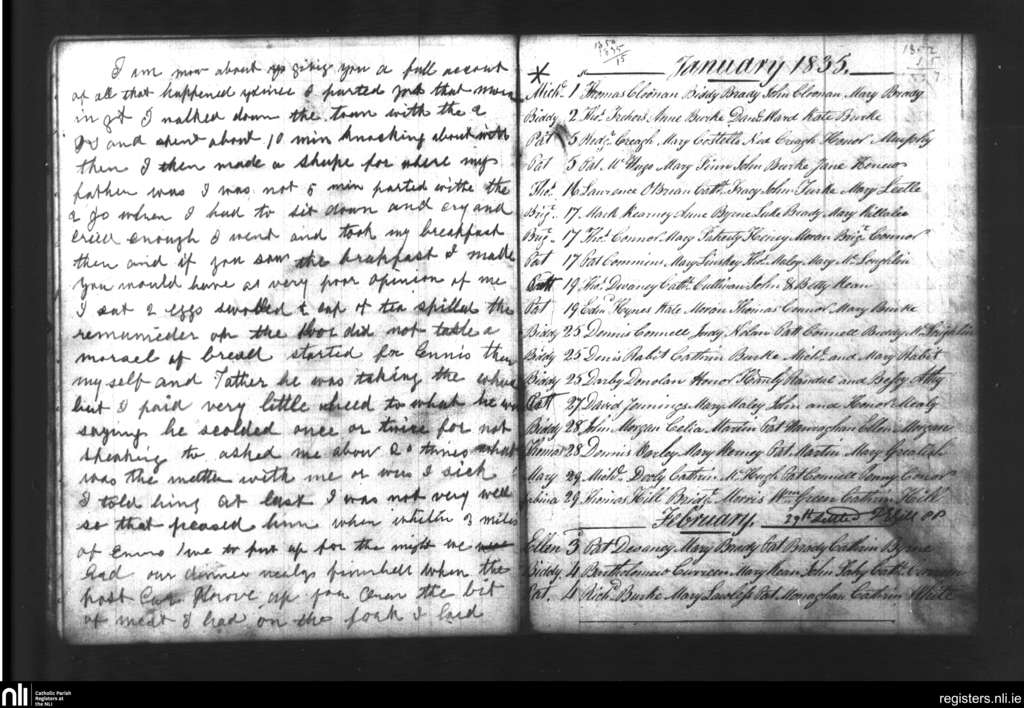 I am now about giving you a full account
of all that happened since I parted you that
I walked down the town with the 2
and spent about 10 min knocking about with
them I then made a shape for where my
father was I was not 5 min parted withe the
2 Jos when I had to sit down and cry and
cried enough I went and took my breakfast
then and if you saw the brakfast I made
you would have a very poor opinion of me
I eat 2 eggs cup of tea spilled the
remainder on the floor did not taste a
morsel of bread started for Ennis then
my self and Father he was taking the whole
but I paid very little heed to what he was
saying he scolded once or twice for not
speaking to asked me about 20 times what
was the matter with me or was I sick
I told him at last I was not very well
so that pleased him when within 3 miles
of Ennis we to put up for the night we
had our dinner finished when the
post Car drove up the bit
of meat I had on the fork I laid
1835
15
January 1835.
Mich. 1 Thomas Cloonan Biddy Brady John Cloonan Mary Brady
Biddy 2 Thos. Anne Burke Danl. Ward Kate Burke
Pat 5 Creagh Mary Costello Ned Creagh Honor Murphy
Pat 5 Pat. McHugo Mary Finn John Burke Jane
Thos. 16 Lawrence OBrian Cath. Tracy John Burke Mary Leetle
Brig. 17 Mark Kearney Anne Byrne Luke Brady Mary Killalea
Brig. 17 Thos. Connor Mary Faherty Henery Moran Brig. Connor
Pat 17 Pat Commins Mary Linskey Thos. Maley Mary McLoughlin
Patt 19 Thos. Dwaney Cath. Cullivan John & Betty Kean
Pat 19 Edwd. Hynes Kate Moran Thomas Connor Mary Burke
Biddy 25 Dennis Connell Judy Nolan Patt Connell Biddy
Biddy 25 Denis Rabit Cathrin Burke Michl. and Mary Rabit
Biddy 25 Darby Donolan Honor Randal and Betsy Athy
Patt 27 David Jennings Mary Maley John and Honor Mealy
Biddy 28 John Morgan Celia Martin Pat Hannaghan Ellen Morgan
Thomas 28 Dennis Varley Mary Pat Martin Mary Grealish
Mary 29 Michl. Dooly Cathrin McHugh Pat Connell Penny Conor
Sabina 29 Thomas Hill Bridgt. Morris Wm. Green Cathrin Hill
February. 29th Settled
Ellen 3 Pat Devaney Mary Brady Pat Brady Cathrin Byrne
Biddy 4 Bartholomew Curreen Mary Kean John Cath.
Pat. 4 Richd. Burke Mary Lawless Pat Monaghan Cathrin
nli
Catholic Parish
Registers at
the NLI
registers.nli.ie